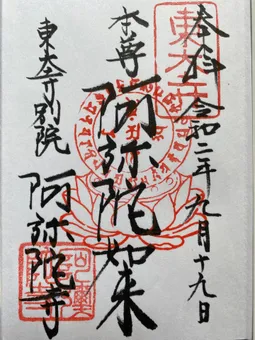 奉拝 令和二年九月十九日
東大寺
本尊 阿弥陀如来
東大寺別院 阿弥陀寺